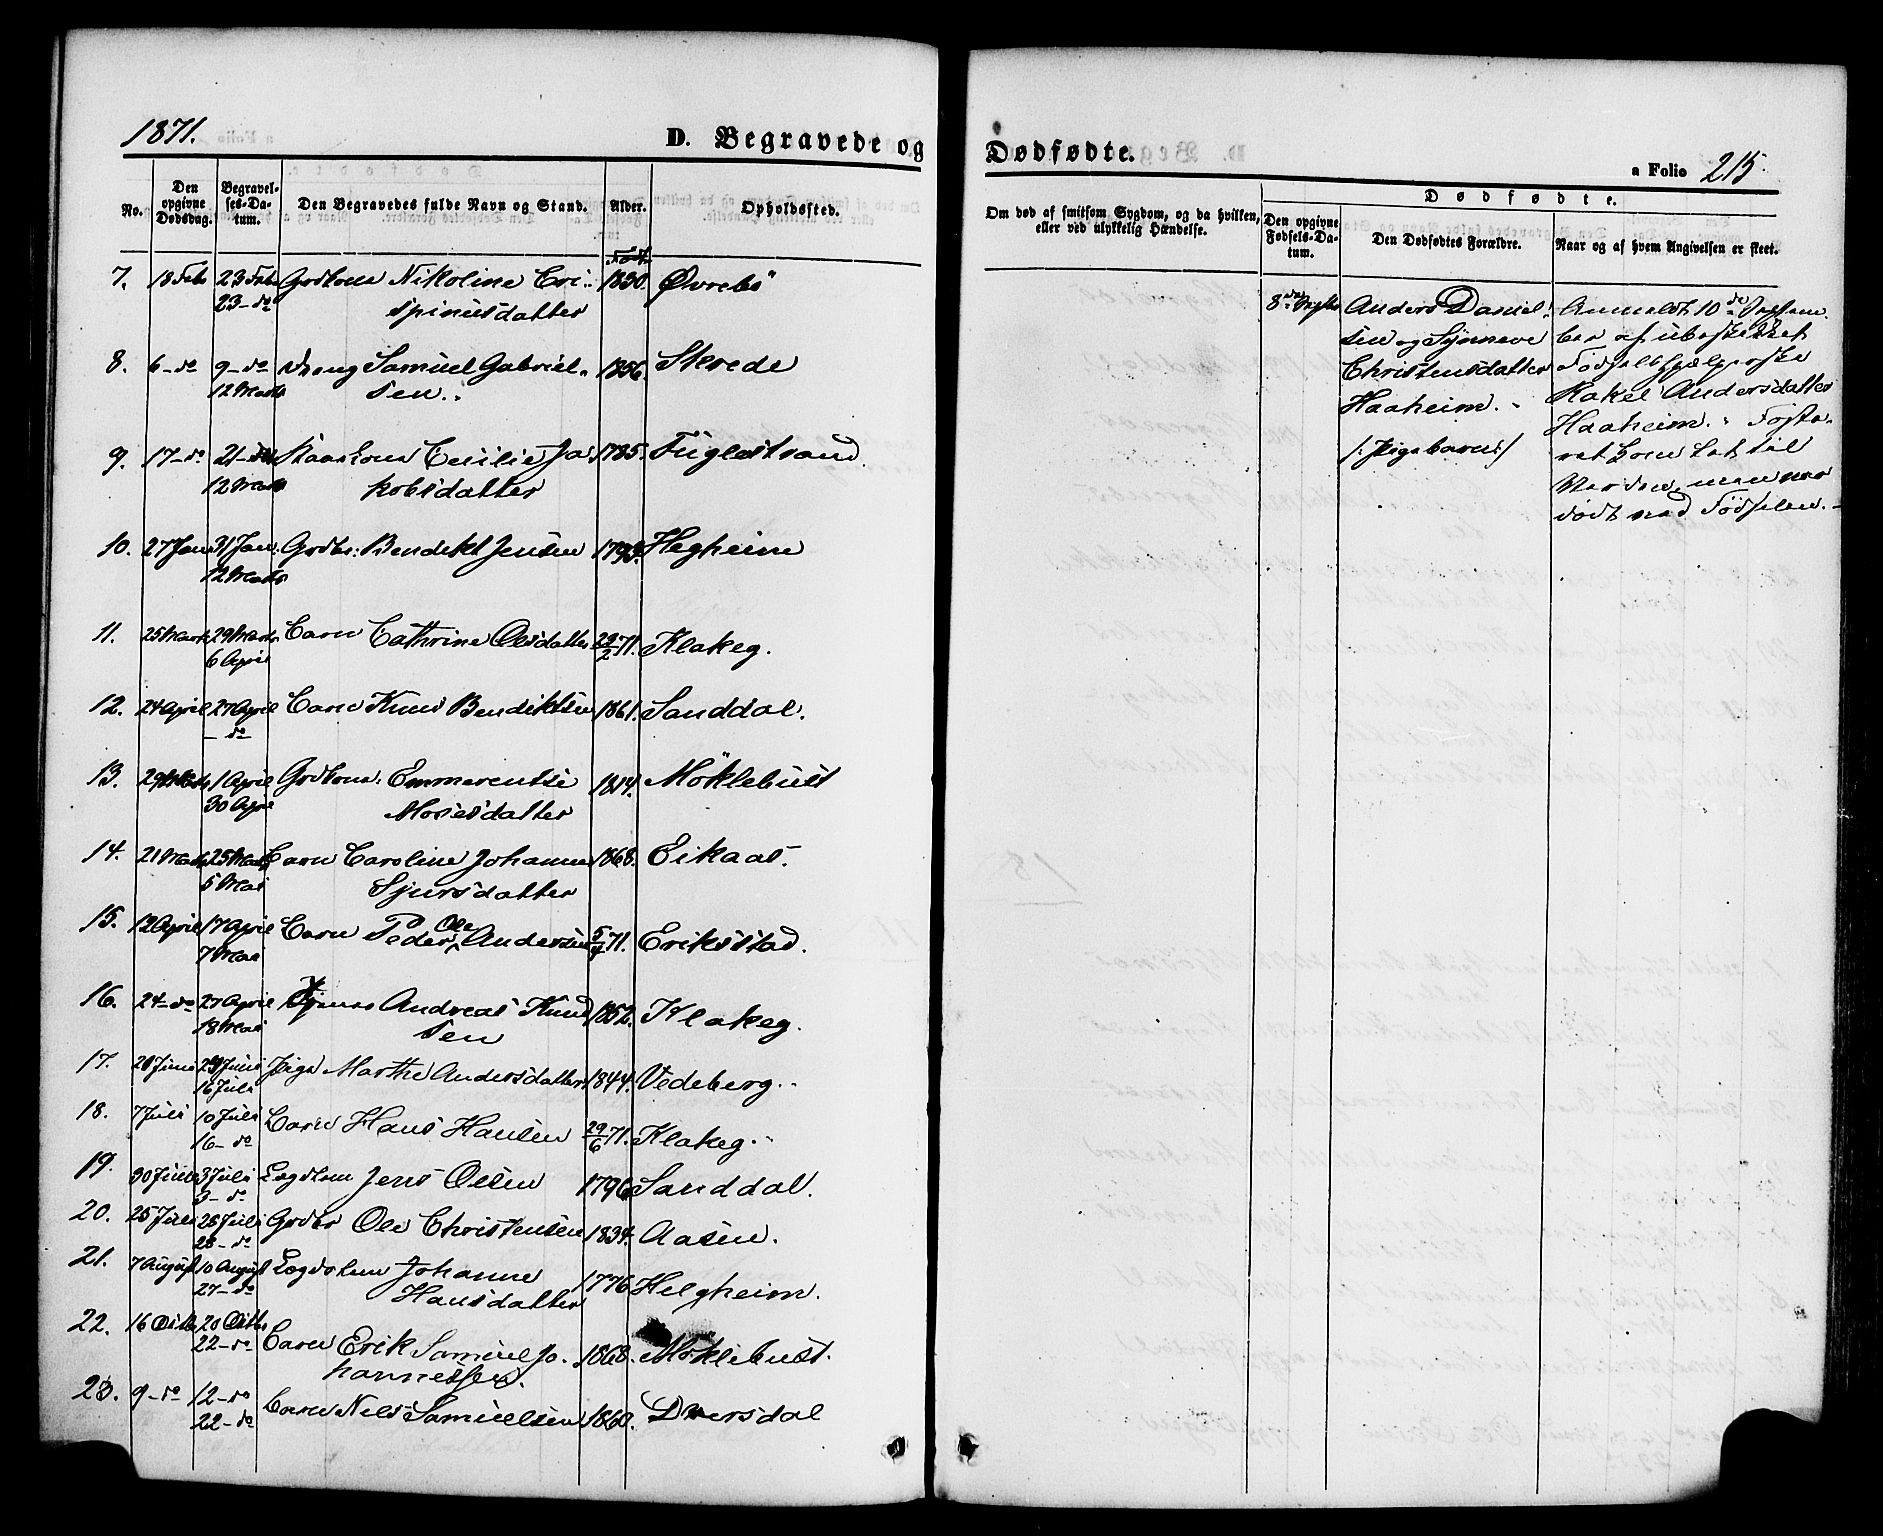 1871.
D. Begravede og
No.
Den opgivne Dødsdag.
Begravelses-Datum.
Den Begravedes fulde Navn og Stand.
Alder.
Opholdssted.
Født
7. 18 Feb 23 Feb Grdkona Nikoline Cri- 1830. Øvrebö
23 - do spinusdatter
8. 6 - do 9 - do Dreng Samuel Gabriel- 1856. Skrede
12 Marts sen.
9. 17 - do 21 - do Kaarkona Cecilie Ja 1785. Fuglestrand
12 Marts kobsdatter
10. 27 Jan 31 Jan: Grdbr: Bendikt Jensen Hegheim
12 Marts
11. 25 Marts 29 Marts Barn Cathrine Olsdatter 29/2 71. Klakeg.
6 April
12. 24 April 27 April Barn Knud Bendiktsen 1861. Sanddal.
- do
13. 29 Marts 1 April Grdkona: Emmerentse 1814. Möklebust
30 April Mosesdatter
14. 21 Marts 25 Marts Barn Caroline Johanne 1868. Eikaas.
5 Mai Sjursdatter
15. 12 April 17 April Barn Peder Ole Andersen 5/4 71. Eriksstad.
7 Mai
16. 24 - do 27 April Andreas Knud 1852. Klakeg.
18 Mai sen
17. 20 Juni Juni Pige Marthe Andersdatter 1844. Vedeberg.
16 Juli
18. 7 Juli 10 Juli Barn Hans Hansen 29/6 71. Klakeg.
16 - do
19. 30 Juni 3 Juli Lægdslem Jens Olsen 1796 Sanddal.
3 - do
20. 25 Juli 28 Juli Grdbr Ole Christensen 1834. Aasen.
28 - do
21. 7 August 10 August Lægdslem Johanne 1776 Helgheim.
27 - do Hansdatter
22. 16 Oktb 20 Oktb Barn Erik Samuel Jo. 1868. Möklebust.
22 - do hannessen.
23. 9 - do 12 - do Barn Nils Samuelsen 1860. Dvergsdal
22 - do
Dødfødte.
a Folio 215.
Om død af smitsom Sygdom, og da hvilken, eller ved ulykkelig Hændelse.
Dødfødte.
Den opgivne Fødsels-Datum.
Den Dødfødtes Forældre.
Naar og af hvem Angivelsen er skeet.
8de Septbr Anders Daniel- Anmeldt 10de Septem
sen og Synneve ber af ubeskikket
Christensdatter Fødselshjælperske
Haaheim. Rakel Andersdatter
Haaheim. Foste-
/: Pigebarn :/ ret kom let til
Verden, men var
dødt ved Fødselen.